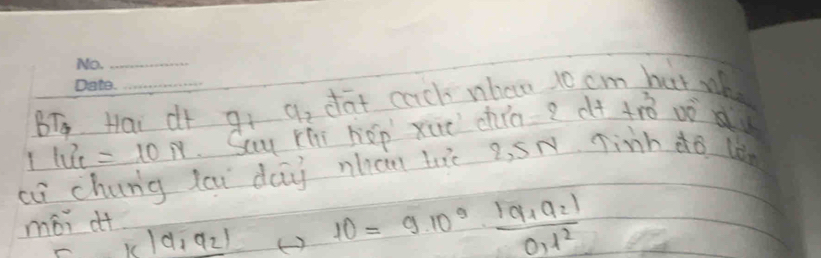 No. ................
Date. ................
BT4 Hai dt q1 q2 đặt cách nhau 10 cm hút
1 lực = 10 N. Sau khi tiếp xúc đưa 2 dt trở về
cũ chúng lại đẩy nhau lực 2,5N. Tính độ lớn
mỗi dt
K|q1q2| ↔ 10 = 9.10⁹. |q1q2|
0,1²